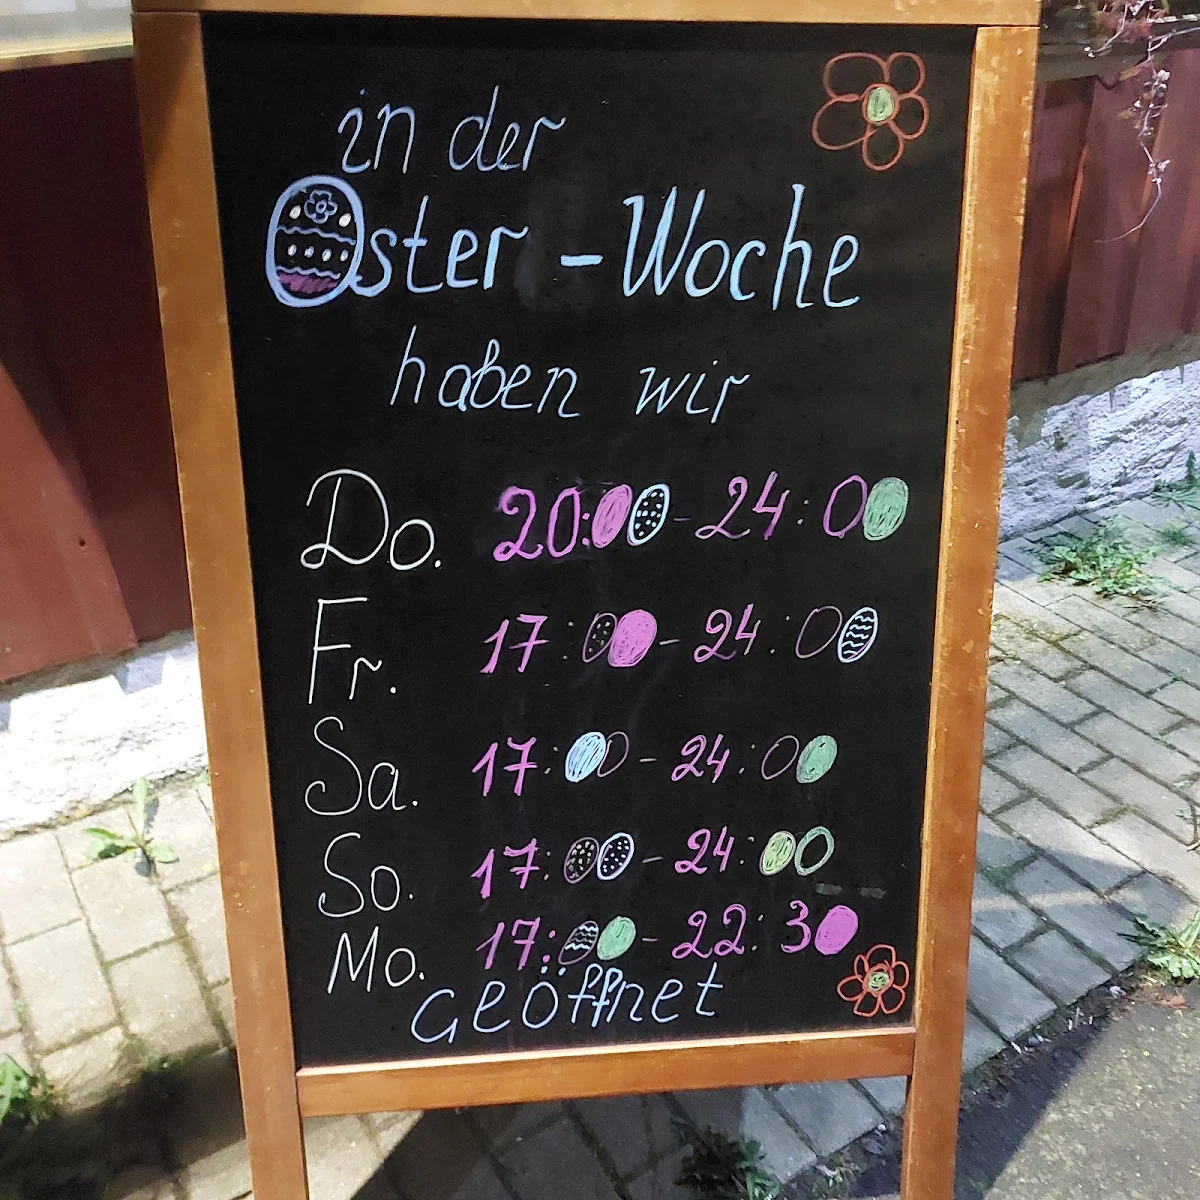 in der
Oster - Woche
haben wir
Do. 20:00 - 24:00
Fr. 17:00 - 24:00
Sa. 17:00 - 24:00
So. 17:00 - 24:00
Mo. 17:00 - 22:30
geöffnet